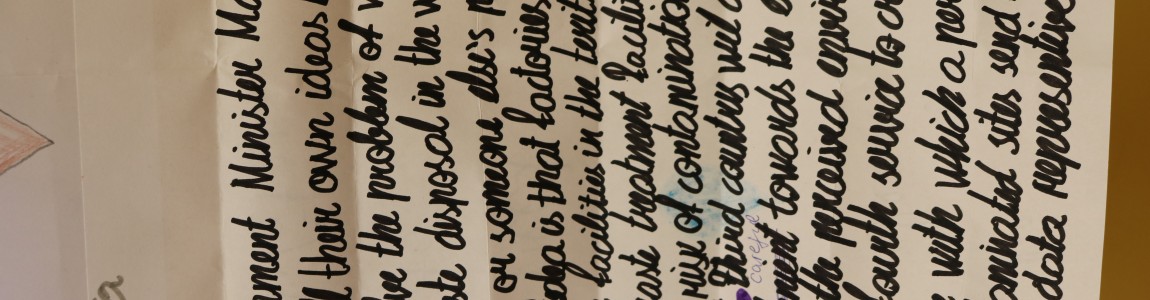 nment Minister Ma
their own ideas
ve the problem of w
ste disposal in the w
or someone else's p
idea is that factories
facilities in the territ
waste treatment facili
risk of contamination
third countries wil
ment towards the e
the perceived envir
fourth service to cr
with which a per
ominated sites send
data representive
careful